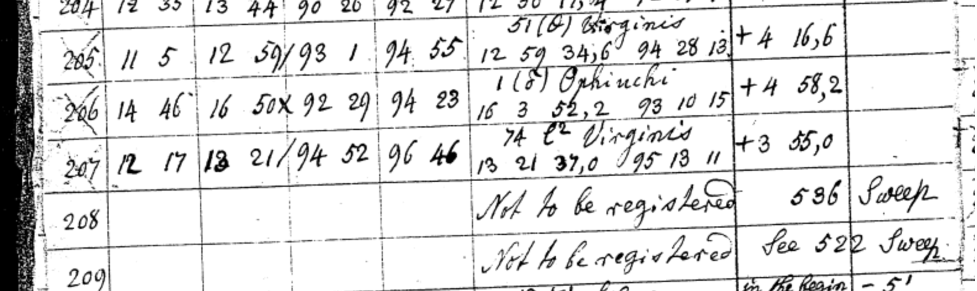 204 12 35 13 44 90 20 92 27 12 30 17,4
51 (θ) Virginis
205 11 5 12 59/ 93 1 94 55 12 59 34,6 94 28 13 +4 16,6
1 (δ) Ophiuchi
206 14 46 16 50x 92 29 94 23 16 3 52,2 93 10 15 +4 58,2
74 l² Virginis
207 12 17 13 21/ 94 52 96 46 13 21 37,0 95 13 11 +3 55,0
208 Not to be registered 536 Sweep
209 Not to be registered See 522 Sweep
in the begin – 5'